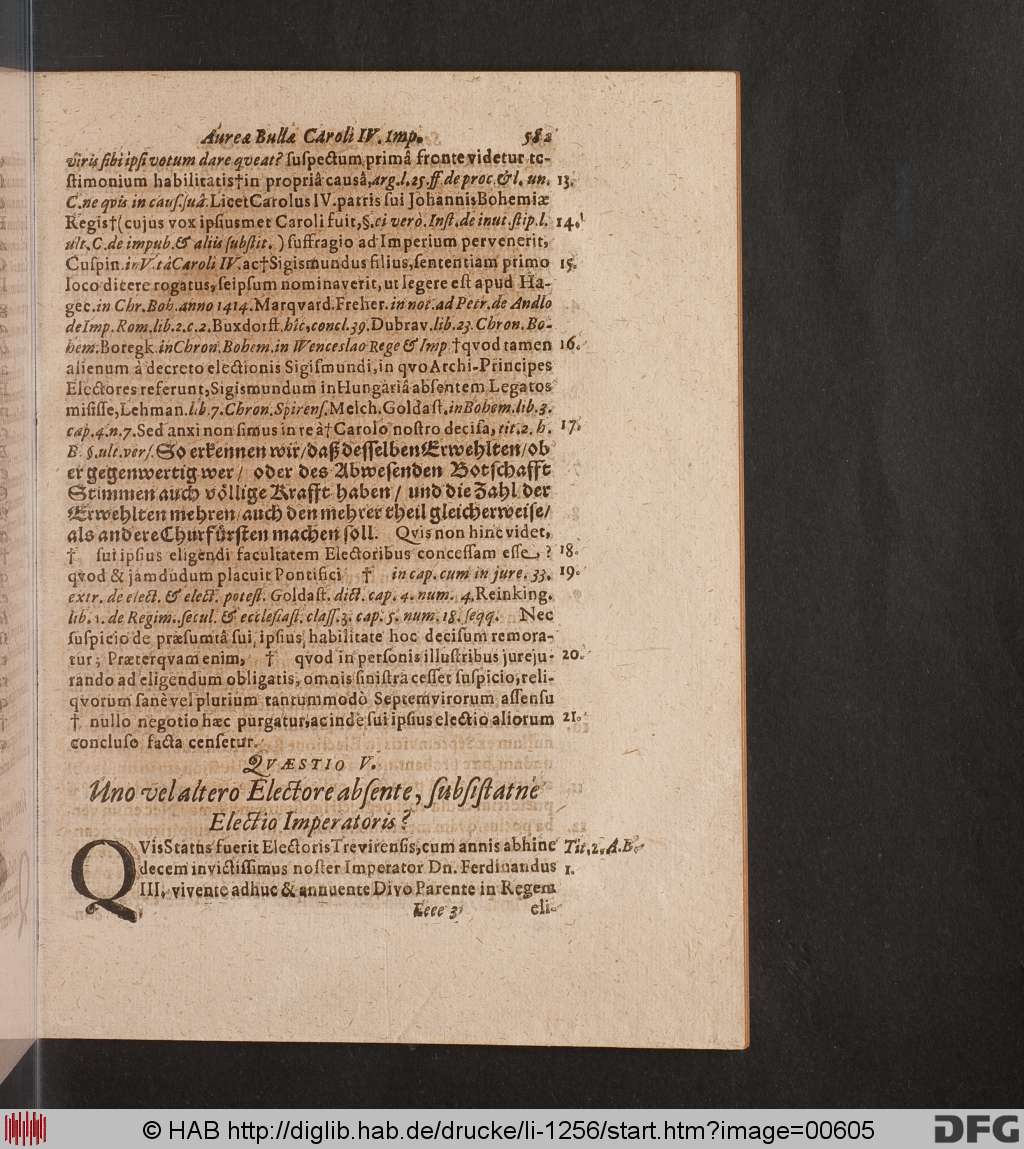 Aureæ Bullæ Caroli IV. Imp. 582
viris sibi ipsi votum dare qveat? suspectum primâ fronte videtur te-
stimonium habilitatis†in propriâ causâ, arg. l. 25. ff. de proc. & l. un. 13.
C. ne qvis in caus. suâ. Licet Carolus IV. patris sui Johannis Bohemiæ
Regis†(cujus vox ipsiusmet Caroli fuit, §. ei verò. Inst. de inut. stip. l. 14.
ult. C. de impub. & aliis substit.) suffragio ad Imperium pervenerit,
Cuspin. in Vitâ Caroli IV. ac†Sigismundus filius, sententiam primo 15.
loco dicere rogatus, seipsum nominaverit, ut legere est apud Ha-
gec. in Chr. Boh. anno 1414. Marqvard. Freher. in not. ad Petr. de Andlo
de Imp. Rom. lib. 2. c. 2. Buxdorff. hîc, concl. 39. Dubrav. lib. 23. Chron. Bo-
hem. Boregk. in Chron. Bohem. in Wenceslao Rege & Imp †qvod tamen 16.
alienum à decreto electionis Sigismundi, in qvo Archi-Principes
Electores referunt, Sigismundum in Hungariâ absentem Legatos
misisse, Lehman. lib. 7. Chron. Spirens. Melch. Goldast. in Bohem. lib. 3.
cap. 4. n. 7. Sed anxi non simus in re à† Carolo nostro decisa, tit. 2. h. 17.
B. §. ult. vers. So erkennen wir/ daß desselben Erwehlten/ ob
er gegenwertig wer/ oder des Abwesenden Botschafft
Stimmen auch völlige Krafft haben/ und die Zahl der
Erwehlten mehren/ auch den mehrer theil gleicherweise/
als andere Churfürsten machen soll. Qvis non hinc videt,
† sui ipsius eligendi facultatem Electoribus concessam esse, ? 18.
qvod & jamdudum placuit Pontifici † in cap. cum in jure. 33. 19.
extr. de elect. & elect. potest. Goldast. dict. cap. 4. num. 4. Reinking.
lib. 1. de Regim. secul. & ecclesiast. class. 3. cap. 5. num. 18. seqq. Nec
suspicio de præsumtâ sui, ipsius, habilitate hoc decisum remora-
tur; Præterqvam enim, † qvod in personis illustribus jureju- 20.
rando ad eligendum obligatis, omnis sinistra cesset suspicio, reli-
qvorum sanè vel plurium tantummodò Septemvirorum assensu
† nullo negotio hæc purgatur, ac inde sui ipsius electio aliorum 21.
concluso facta censetur.
QVÆSTIO V.
Uno vel altero Electore absente, subsistatne
Electio Imperatoris?
QVis Status fuerit Electoris Trevirensis, cum annis abhinc Tit. 2. A. B.
decem invictissimus noster Imperator Dn. Ferdinandus 1.
III, vivente adhuc & annuente Divo Parente in Regem
Eeee 3 eli-
© HAB http://diglib.hab.de/drucke/li-1256/start.htm?image=00605
DFG